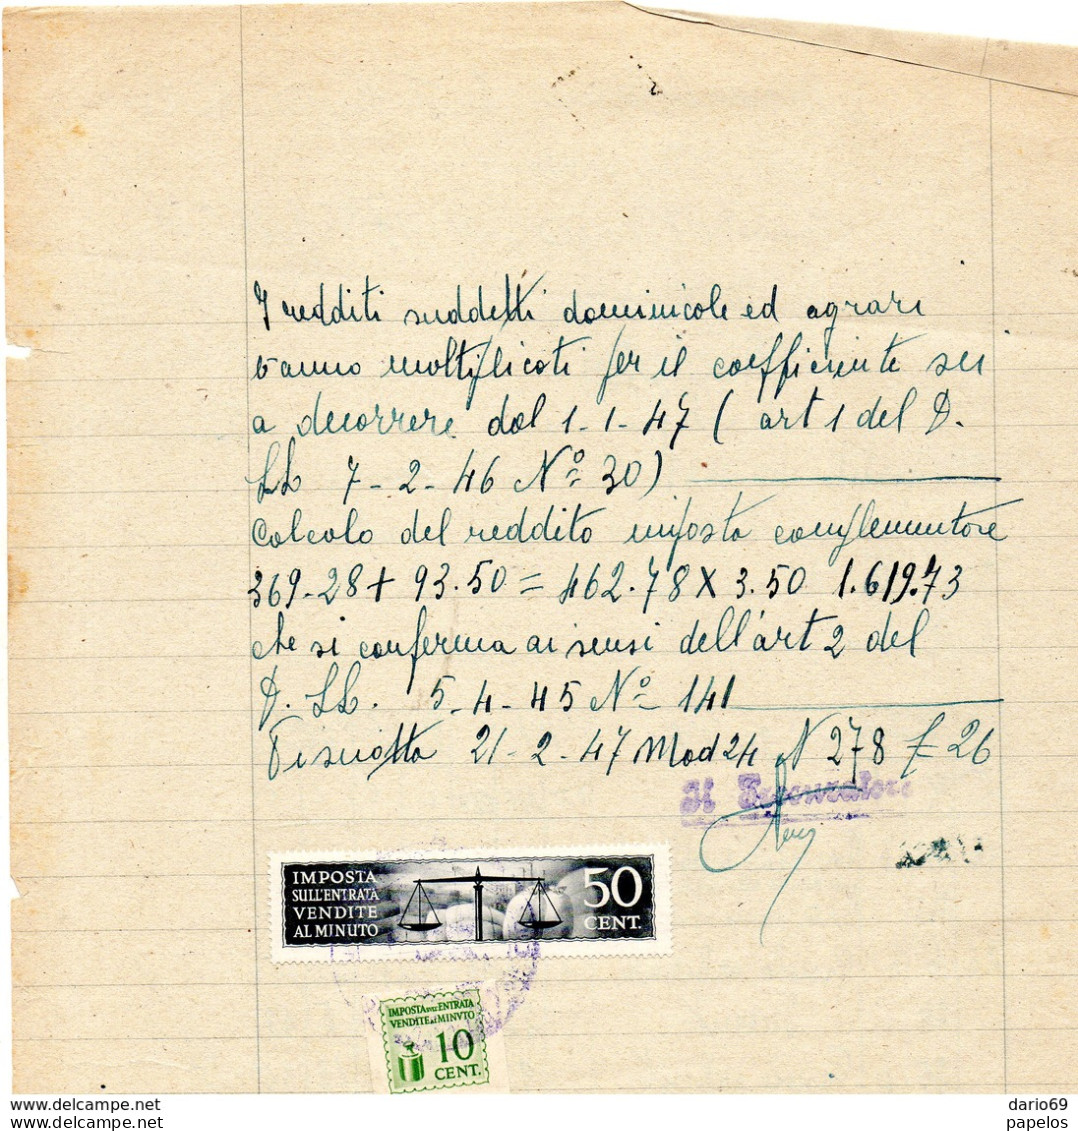 I redditi suddetti dominicale ed agrari
vanno moltiplicati per il coefficiente sei
a decorrere dal 1-1-47 ( art 1 del D.
LL 7-2-46 Nº 30)
Calcolo del reddito imposta complementare
369.28 + 93.50 = 462.78 X 3.50 1.619.73
che si conferma ai sensi dell'art 2 del
D. LL. 5-4-45 Nº 141
21-2-47 Mod 24 N 278 £ 26
Il Procuratore
IMPOSTA
SULL'ENTRATA
VENDITE
AL MINUTO
50
CENT.
IMPOSTA SULL'ENTRATA
VENDITE AL MINVTO
10
CENT.
www.delcampe.net
www.delcampe.net
dario69
papelos